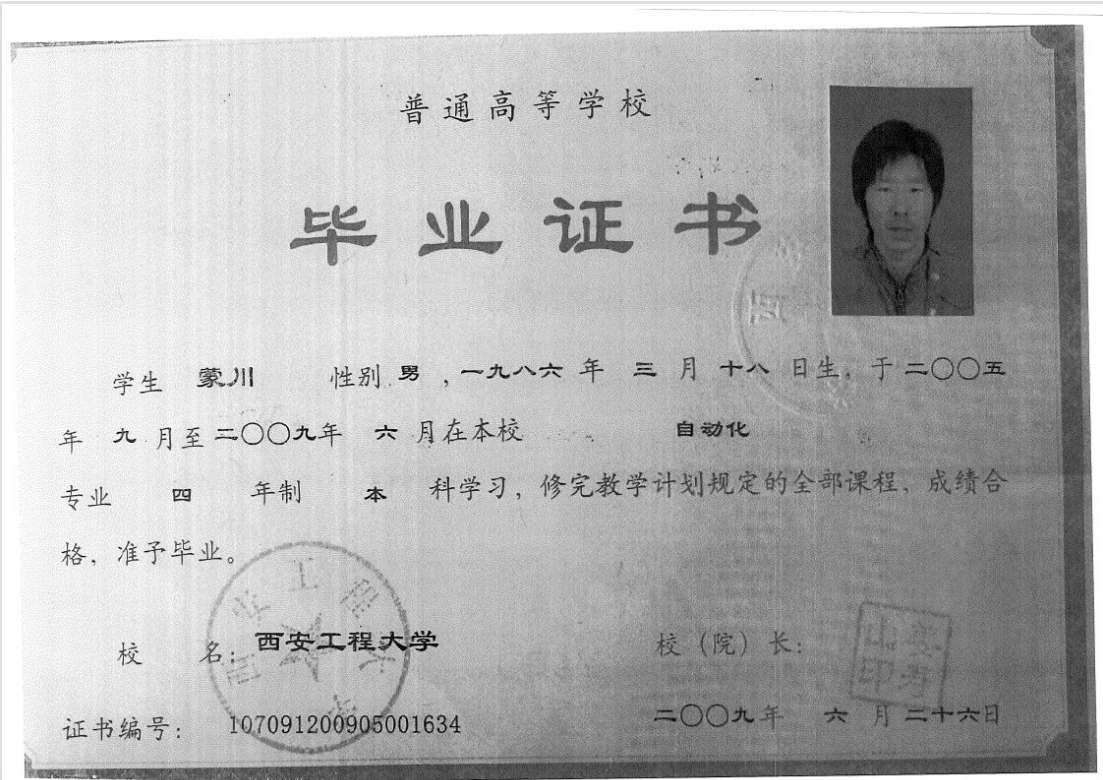 普通高等学校
毕业证书
学生 蒙川 性别 男 ,一九八六 年 三 月 十八 日生, 于 二〇〇五
年 九 月至 二〇〇九年 六 月在本校 自动化
专业 四 年制 本 科学习, 修完教学计划规定的全部课程, 成绩合
格, 准予毕业。
校 名: 西安工程大学 校(院)长:
证书编号: 107091200905001634 二〇〇九年 六 月 二十六日